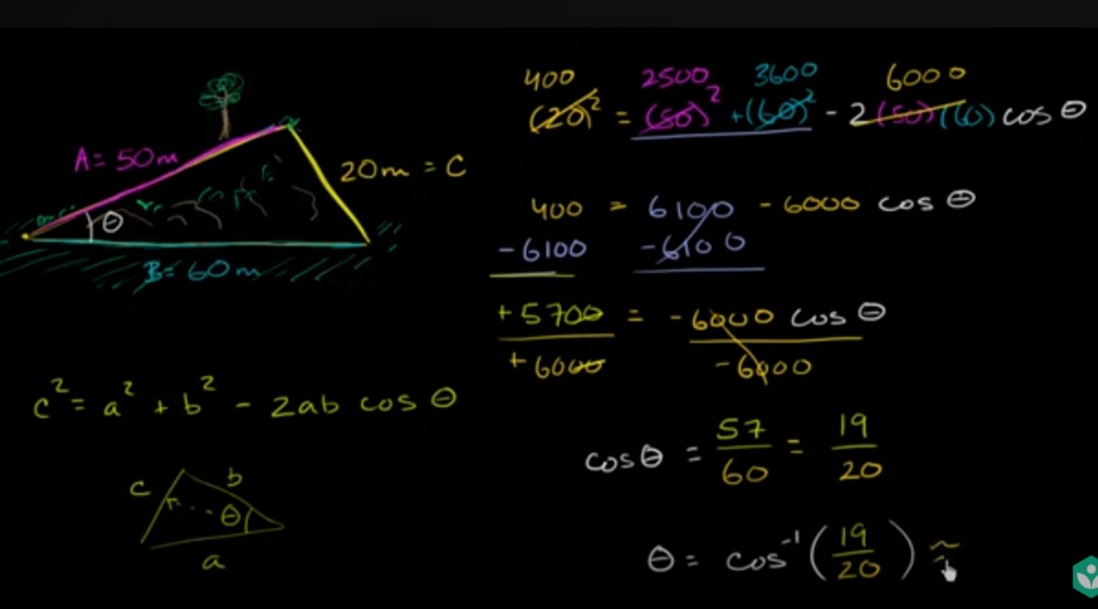 A = 50m
20m = C
θ
B = 60m
c² = a² + b² - 2ab cos θ
c
b
θ
a
400 2500 3600 6000
(20)² = (50)² + (60)² - 2(50)(60) cos θ
400 = 6100 - 6000 cos θ
-6100 -6100
+5700 = -6000 cos θ
+6000 -6000
cos θ = 57/60 = 19/20
θ = cos⁻¹(19/20) ≈